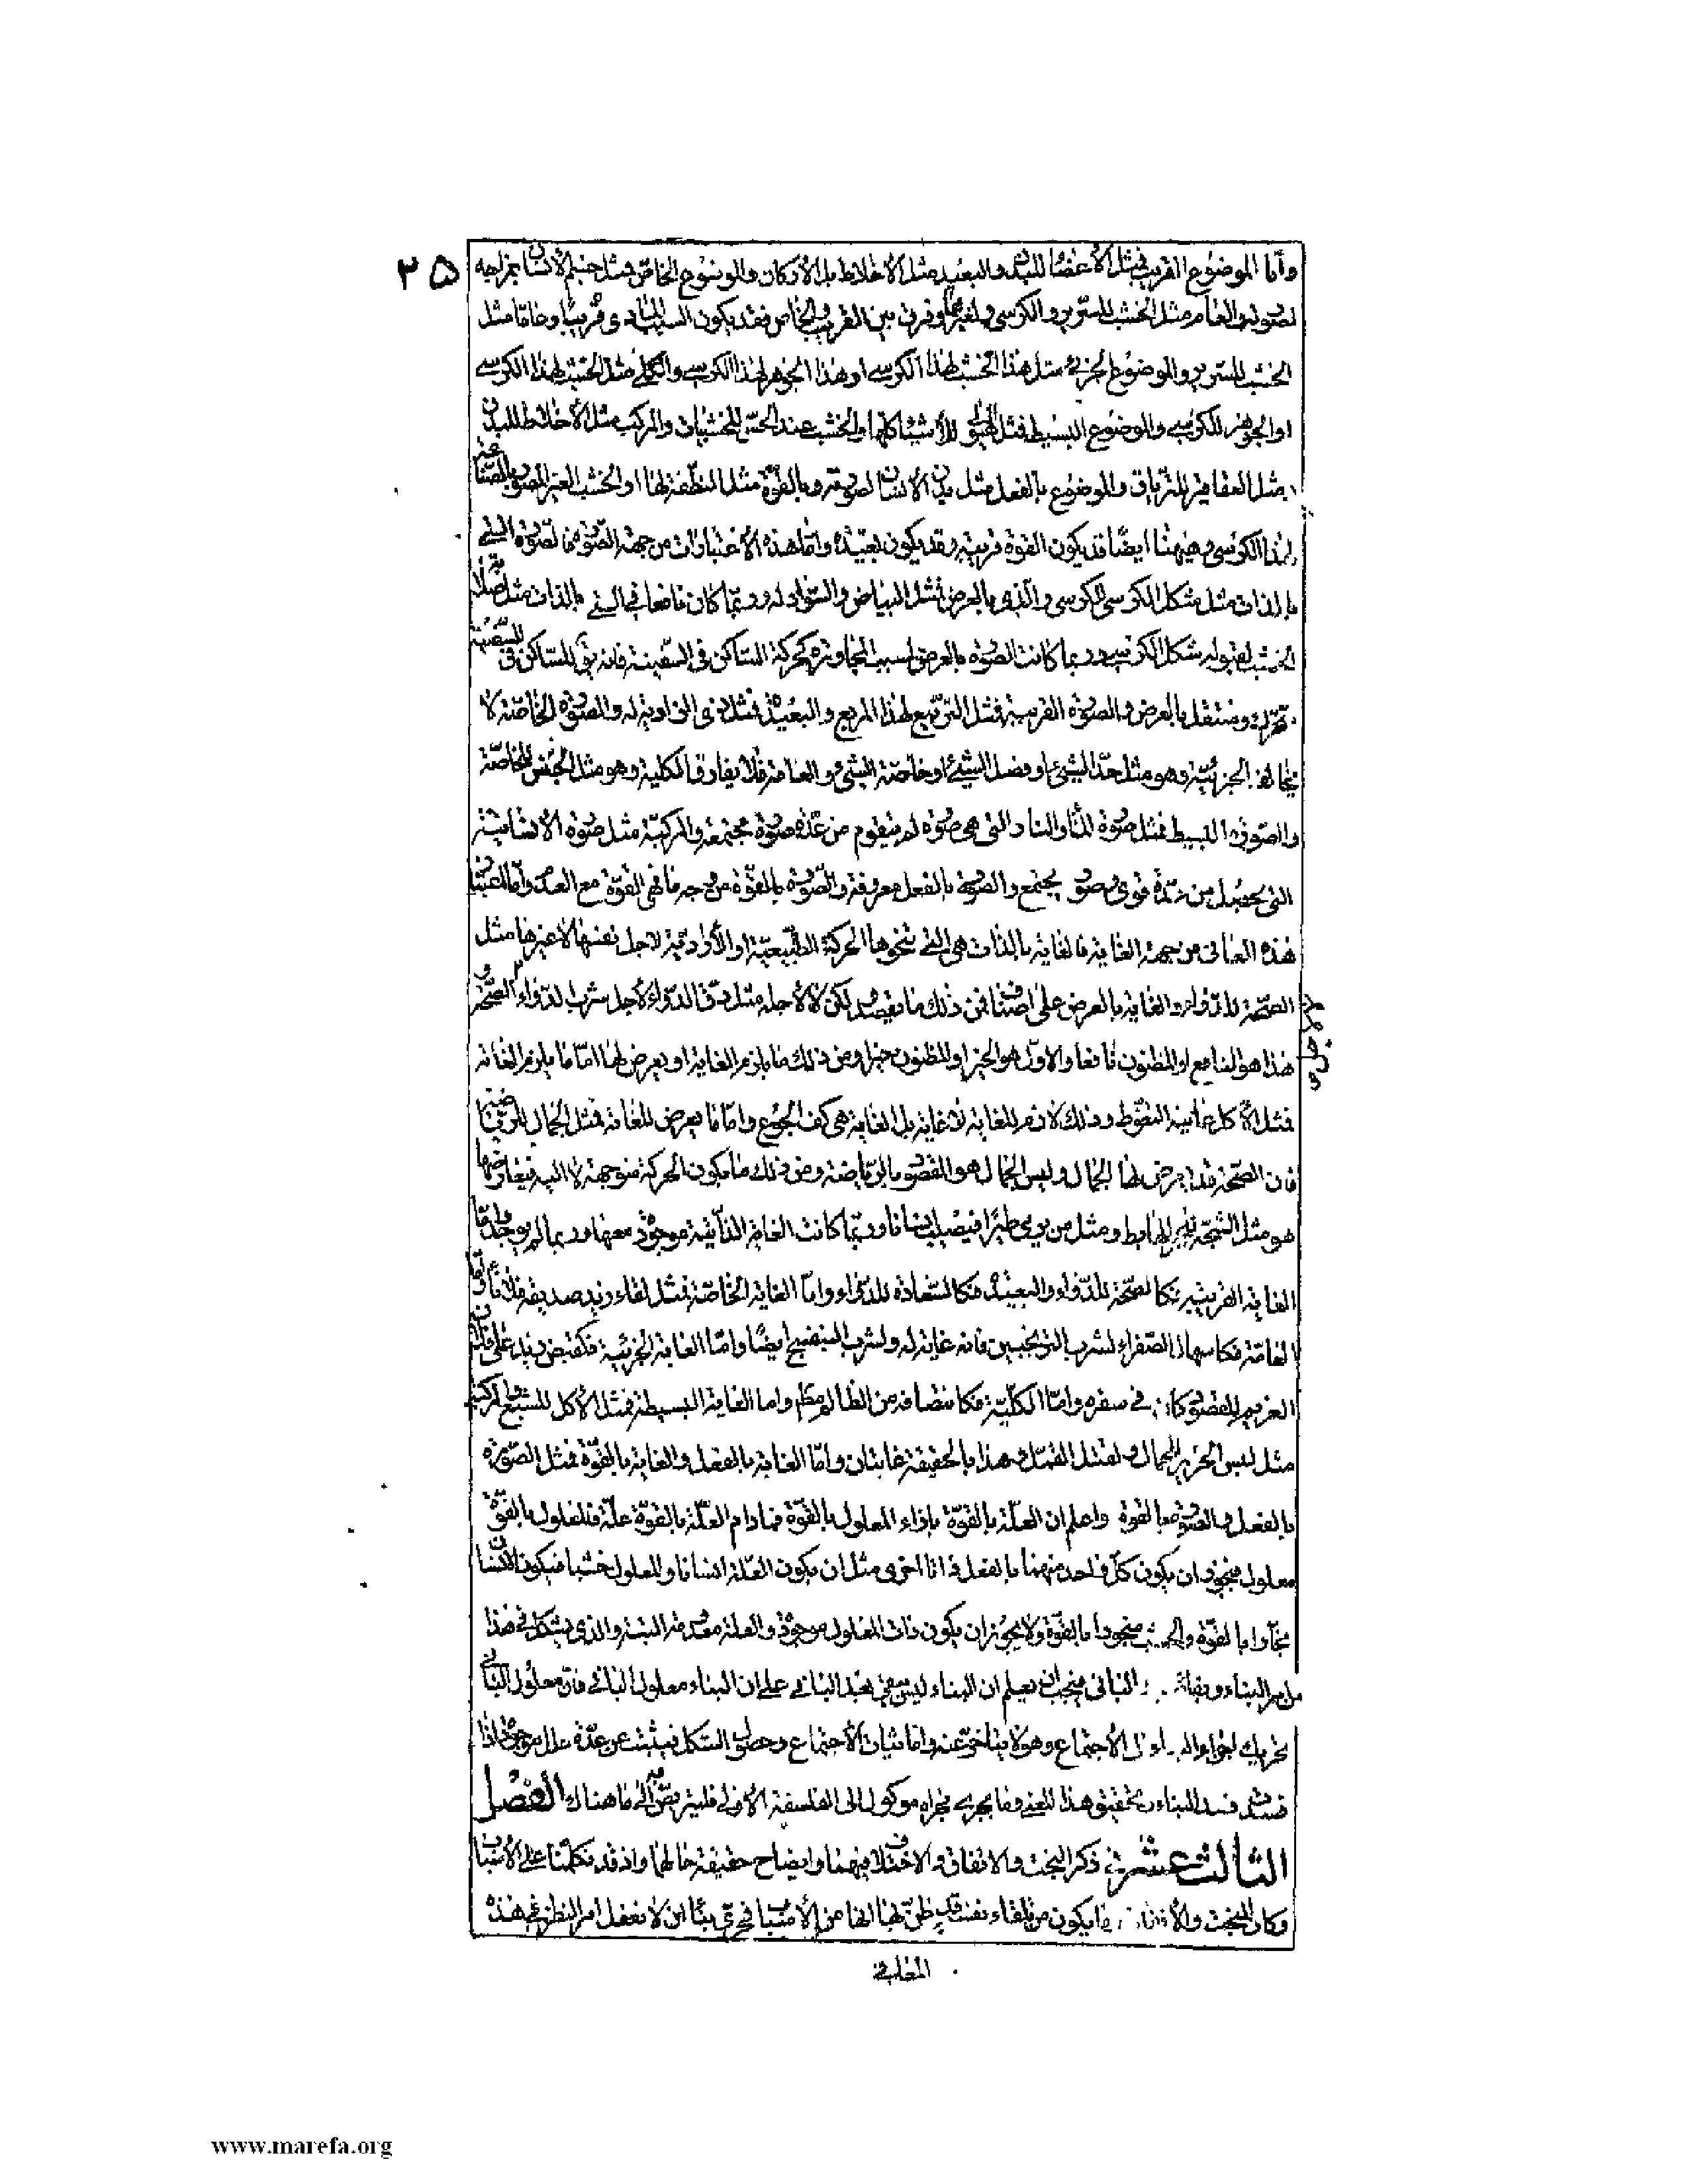 ٣۵
وأما الموضوع القريب فمثل الأعضاء للبدن والبعيد مثل الأخلاط بل الأركان والموضوع الخاص فمثل جسم الأنسان بمزاجه
لصورته والعام مثل الخشب للسرير والكرسي ولغيرهما وفرق بين القريب والخاص فقد يكون السبب المادي قريبا وعاما مثل
الخشب للسرير والموضوع الجزئي مثل هذا الخشب لهذا الكرسي او هذا الجوهر لهذا الكرسي والكلي مثل الخشب لهذا الكرسي
او الجوهر للكرسي والموضوع البسيط فمثل الهيولى للأشياء كلها والخشب عند الحس للخشبيات والمركب مثل الأخلاط للبدن
مثل العقاقير للترياق والموضوع بالفعل مثل بدن الأنسان لصورته وبالقوة مثل النطفة لها او الخشب الغير المصور بالصناعة
لهذا الكرسي وهيهنا ايضا قد يكون القوة قريبة وقد يكون بعيدة واما هذه الأعتبارات من جهة الصورة فما لصورة التي
بالذات مثل شكل الكرسي للكرسي والذي بالعرض فمثل البياض والسواد له وربما كان نافعا في الشئ بالذات مثل صلابة
الخشب لقبوله شكل الكرسي وربما كانت الصورة بالعرض لسبب المجاورة كحركة الساكن في السفينة فانه يق للساكن في السفينة
متحرك ومنتقل بالعرض والصورة القريبة فمثل التربيع لهذا المربع والبعيدة مثل ذى الزاوية له والصورة الخاصة لا
تخالف الجزئية وهو مثل حد الشئ او فصل الشئ او خاصة الشئ والعامة فلا يفارق الكلية وهو مثل الجنس للخاصة
والصورة البسيط فمثل صورة الماء والنار التي هي صورة لم يتقوم من عدة صورة مجتمعة والمركبة مثل صورة الأنسانية
التي يحصل من عدة قوى وصور يجتمع والصورة بالفعل معروفة والصورة بالقوة من وجه ما فهي القوة مع العدم واما اعتبار
هذه المعانى من جهة الغاية فالغاية بالذات هي التي تنحوها الحركة الطبيعية او الأرادية لاجل نفسها لا غيرها مثل
الصحة للدواء والغاية بالعرض على اصناف فمن ذلك ما يقصد لكن لا لأجله مثل دق الدواء لأجل شرب الدواء لاجل الصحة و
هذا هو النافع او المظنون نافعا والاول هو الخير او المظنون خيرا ومن ذلك ما يلزم الغاية او يعرض لها اما ما يلزم الغاية
فمثل الأكل غايته التغوط وذلك لازم للغاية لا غاية بل الغاية هي كف الجوع واما ما يعرض للغاية فمثل الجمال للرياضة
فان الصحة قد يعرض لها الجمال وليس الجمال هو المقصود بالرياضة ومن ذلك ما يكون الحركة متوجهة لا اليه فيعارضها
هو مثل الشجة للحجر الهابط ومثل من يرمي طيرا فيصيب انسانا وربما كانت الغاية الذاتية موجودة معها وربما لم يوجد واما
الغاية القريبة فكالصحة للدواء والبعيدة فكالسعادة للدواء واما الغاية الخاصة فمثل لقاء زيد صديقه فلانا واما
العامة فكاسهال الصفراء لشرب الترنجبين فانه غاية له ولشرب البنفسج ايضا واما الغاية الجزئية فكقبض زيد على فلان
الغريم المقصود كان في سفره واما الكلية فكانتصافه من الظالم مطلقا واما الغاية البسيطة فمثل الأكل للشبع والمركبة
مثل لبس الحرير للجمال ولقتل القمل وهذا بالحقيقة غايتان واما الغاية بالفعل والغاية بالقوة فمثل الصورة
بالفعل والصورة بالقوة واعلم ان العلة بالقوة بازاء المعلول بالقوة فما دام العلة بالقوة علة فالمعلول بالقوة
معلول فيجوز ان يكون كل واحد منهما بالفعل ذاتا اخرى مثل ان يكون العلة انسانا والمعلول خشبا فيكون الأنسان
نجارا بالقوة والخشب منجورا بالقوة ولا يجوز ان يكون ذات المعلول موجودة والعلة معدومة البتة والذي يشكل في هذا
من امر البناء وبقائه الباني فيجب ان يعلم ان البناء ليس يبقى بعد الباني على ان البناء معلول الباني فان معلول الباني
تحريك اجزاء البناء الى الأجتماع وهو لا يتاخر عنه واما ثبات الأجتماع وحصول الشكل فيثبت عن عدة علل موجودة اذا
فسدت فسد البناء وتحقيق هذا المعنى وما يجري مجراه موكول الى الفلسفة الأولى فليتربص به الى ما هناك الفصل
الثالث عشر في ذكر البخت والاتفاق والاختلاف فيهما وايضاح حقيقة حالهما واذ قد تكلمنا على الأسباب
وكان البخت والأتفاق وما يكون من تلقاء نفسه قد ظن بها انها من الأسباب فحري بنا ان لا نغفل امر النظر في هذه
المعاني
www.marefa.org